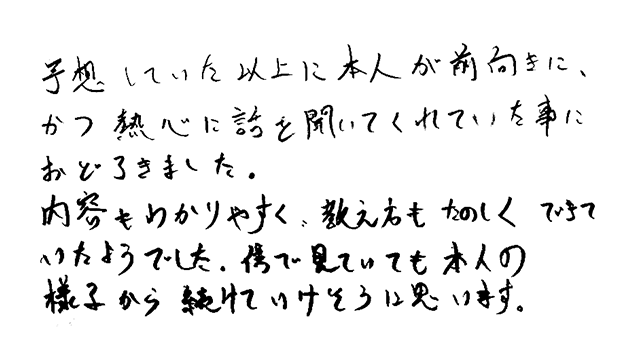 予想していた以上に本人が前向きに、
かつ熱心に話を聞いてくれていた事に
おどろきました。
内容もわかりやすく、教え方もたのしくできて
いたようでした。傍で見ていても本人の
様子から続けていけそうに思います。